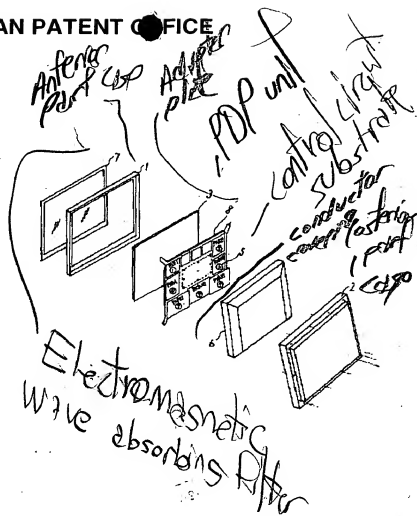 AN PATENT OFFICE
Anterior
part case
Adapter
plate
PDP unit
control circuit
substrate
conductor
covering
Posterior
part
case
7
1
3
4
5
6
2
Electromagnetic
wave absorbing filter